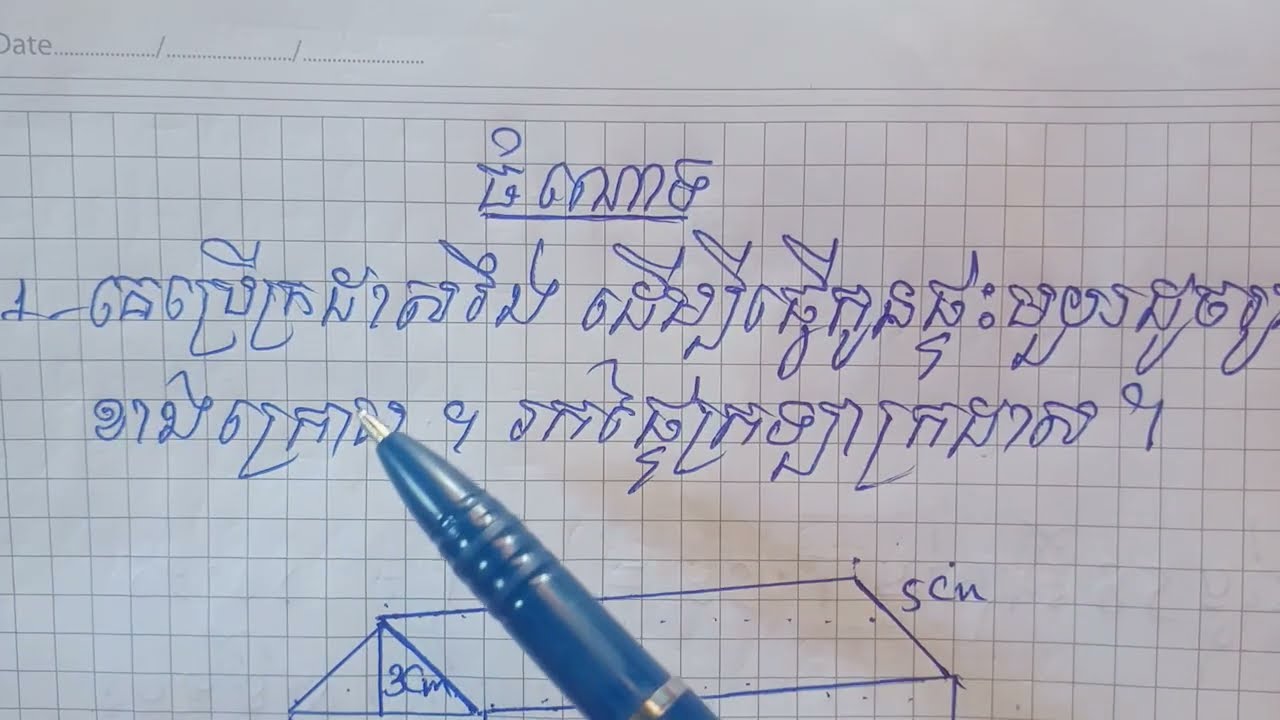 Date................../......................./......................
ចំណោទ
1-គេប្រើក្រដាសរឹង ដើម្បីធ្វើកូនផ្ទះមួយដូចរូប
ខាងក្រោម ។ រកផ្ទៃក្រឡាក្រដាស ។
5cm
3cm